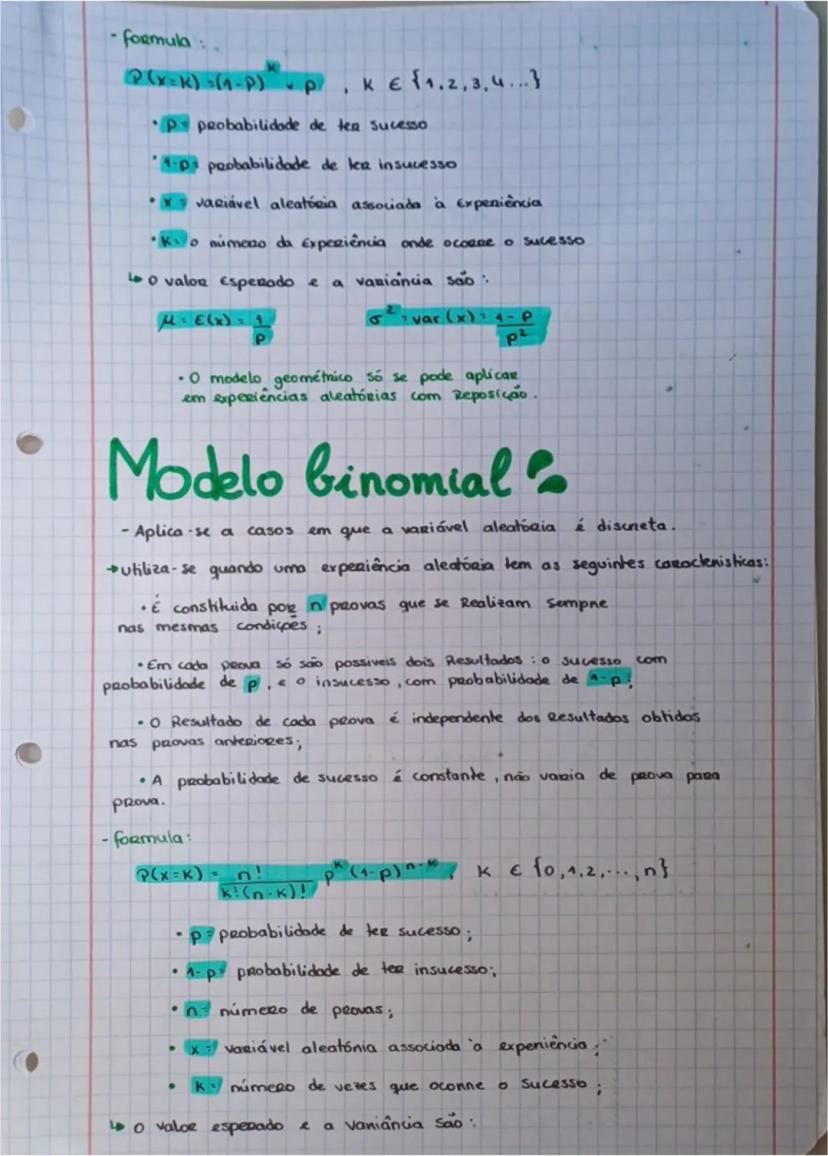 - formula :
P(x=k) = (1-P)^k · P , K ∈ {1,2,3,4...}
• p = probabilidade de ter sucesso
• 1-p = probabilidade de ter insucesso
• x = variável aleatória associada à Experiência
• K = o número da Experiência onde ocorre o sucesso
↳ o valor Esperado e a variância são :
μ = E(x) = 1/P    σ² = var(x) = 1-P/P²
• O modelo geométrico só se pode aplicar
em experiências aleatórias com Reposição.
Modelo binomial
- Aplica-se a casos em que a variável aleatória é discreta.
→ utiliza-se quando uma experiência aleatória tem as seguintes caracteristicas:
• É constituida por n provas que se Realizam sempre
nas mesmas condições ;
• Em cada prova só são possiveis dois Resultados : o sucesso com
probabilidade de p , e o insucesso , com probabilidade de 1-p ;
• O Resultado de cada prova é independente dos Resultados obtidos
nas provas anteriores ;
• A probabilidade de sucesso é constante , não varia de prova para
prova.
- formula :
P(x=K) = n!/K!(n-K)! p^K (1-p)^n-K , K ∈ {0,1,2,...,n}
• p = probabilidade de ter sucesso ;
• 1-p = probabilidade de ter insucesso ;
• n = número de provas ;
• x = variável aleatória associada à experiência ;
• K = número de vezes que ocorre o sucesso ;
↳ o valor esperado e a variância são :